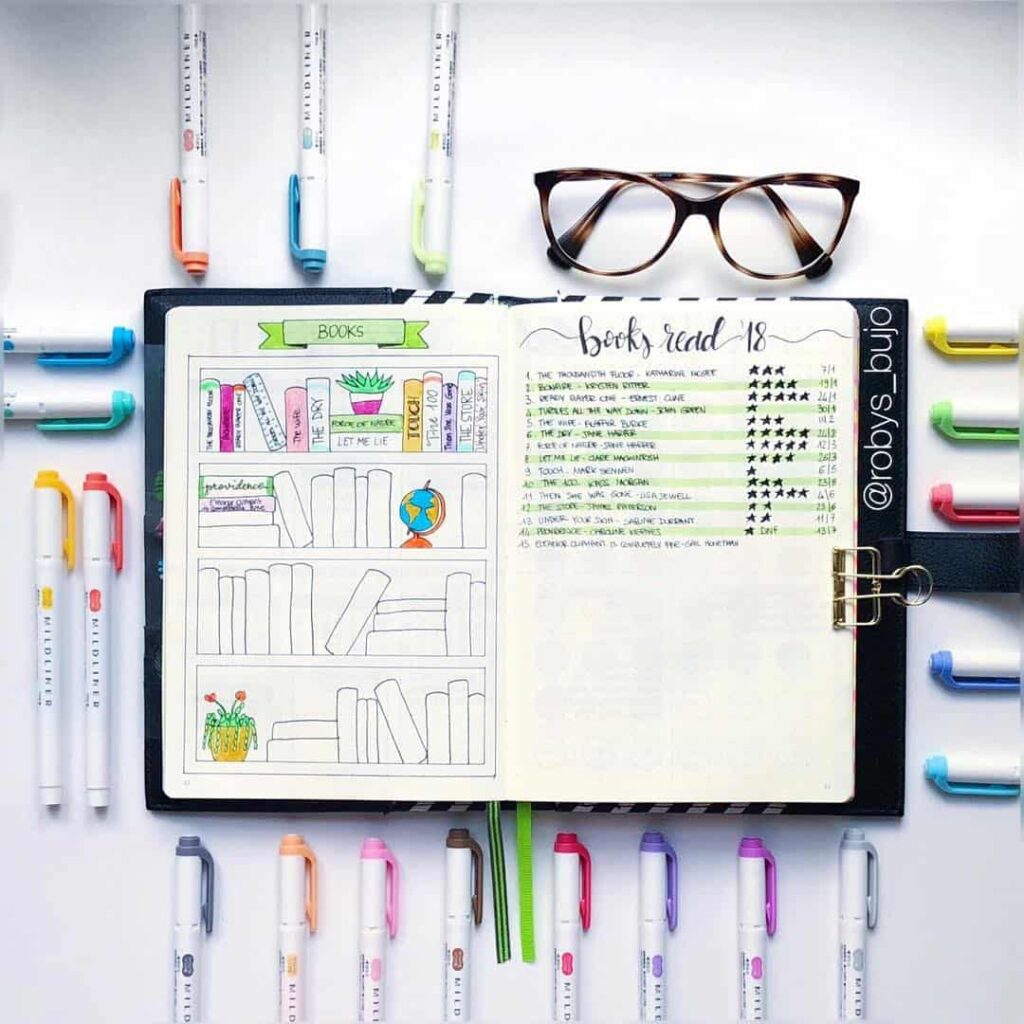 MILDLINER
MILDLINER
MILDLINER
BOOKS
books read '18
1. THE THOUSANDTH FLOOR - KATHARINE MCGEE ★★★ 7/1
2. BONFIRE - KRYSTEN RITTER ★★★★ 19/1
3. READY PLAYER ONE - ERNEST CLINE ★★★★★ 24/1
4. TURTLES ALL THE WAY DOWN - JOHN GREEN ★ 30/1
5. THE WIFE - ALAFAIR BURKE ★★
6. THE DRY - JANE HARPER ★★★★★
7. FORCE OF NATURE - JANE HARPER ★★★★ 12/3
8. LET ME LIE - CLARE MACKINTOSH ★★★★ 26/3
9. TOUCH - MARK SENNEN ★ 6/5
10. THE 100 - KASS MORGAN ★★★
11. THEN SHE WAS GONE - LISA JEWELL ★★★★★ 4/6
12. THE STORE - JAMES PATTERSON ★★
13. UNDER YOUR SKIN - SABINE DURRANT ★★ 11/7
14. PROVIDENCE - CAROLINE KEPNES ★ DNF 13/7
15. ELEANOR OLIPHANT IS COMPLETELY FINE - GAIL HONEYMAN
The Wife
THE DRY
FORCE OF NATURE
LET ME LIE
TOUCH
THE 100
Then She Was Gone
THE STORE
Under Your Skin
providence
Eleanor Oliphant
is Completely Fine
@robys_bujo
MILDLINER
MILDLINER
MILD
MILD
MILD
MILD
MILD
MILD